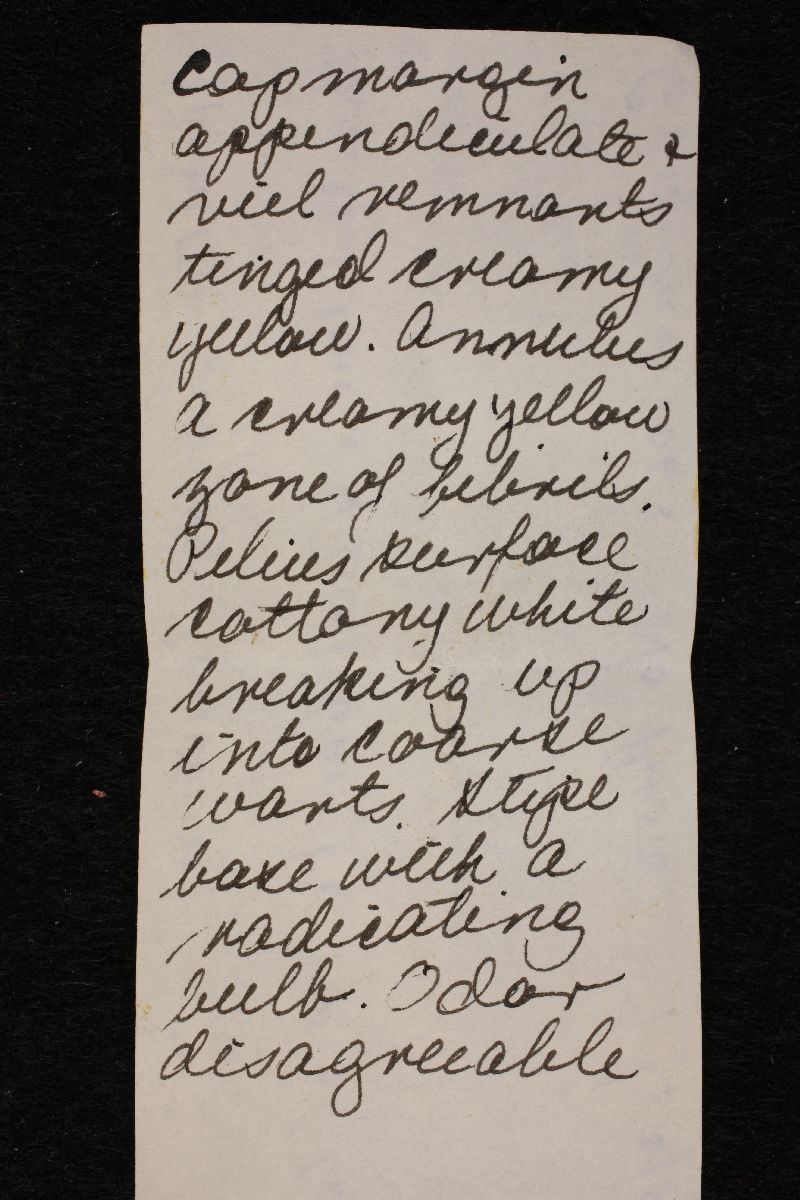 Cap margin
appendiculate &
viel remnants
tinged creamy
yellow. Annulus
a creamy yellow
zone of fibrils.
Pelius surface
cottony white
breaking up
into coarse
warts. Stipe
base with a
radicating
bulb. Odor
disagreeable